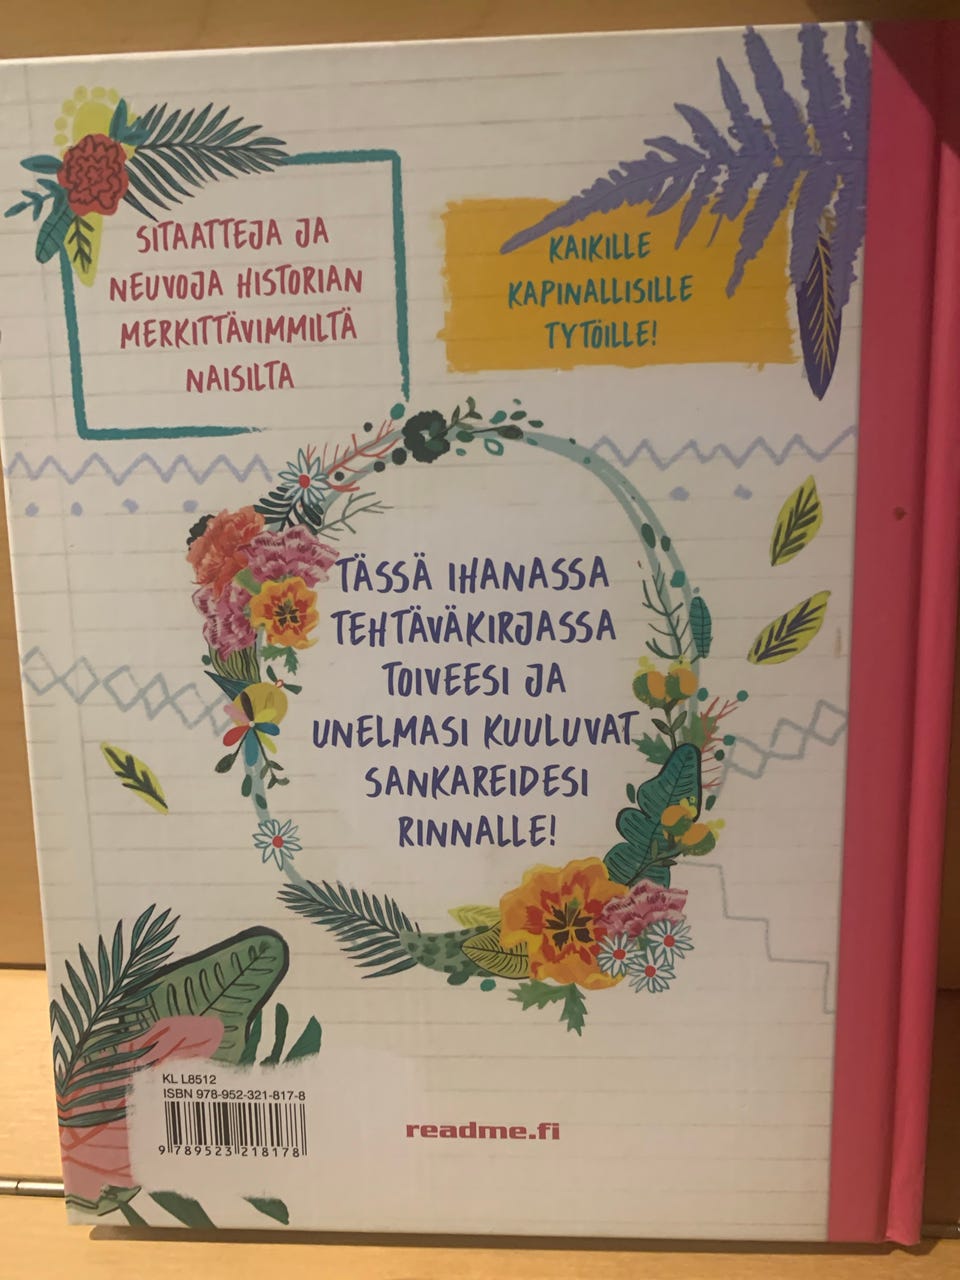 SITAATTEJA JA
NEUVOJA HISTORIAN
MERKITTÄVIMMILTÄ
NAISILTA
KAIKILLE
KAPINALLISILLE
TYTÖILLE!
TÄSSÄ IHANASSA
TEHTÄVÄKIRJASSA
TOIVEESI JA
UNELMASI KUULUVAT
SANKAREIDESI
RINNALLE!
KL L8512
ISBN 978-952-321-817-8
9 789523 218178
readme.fi